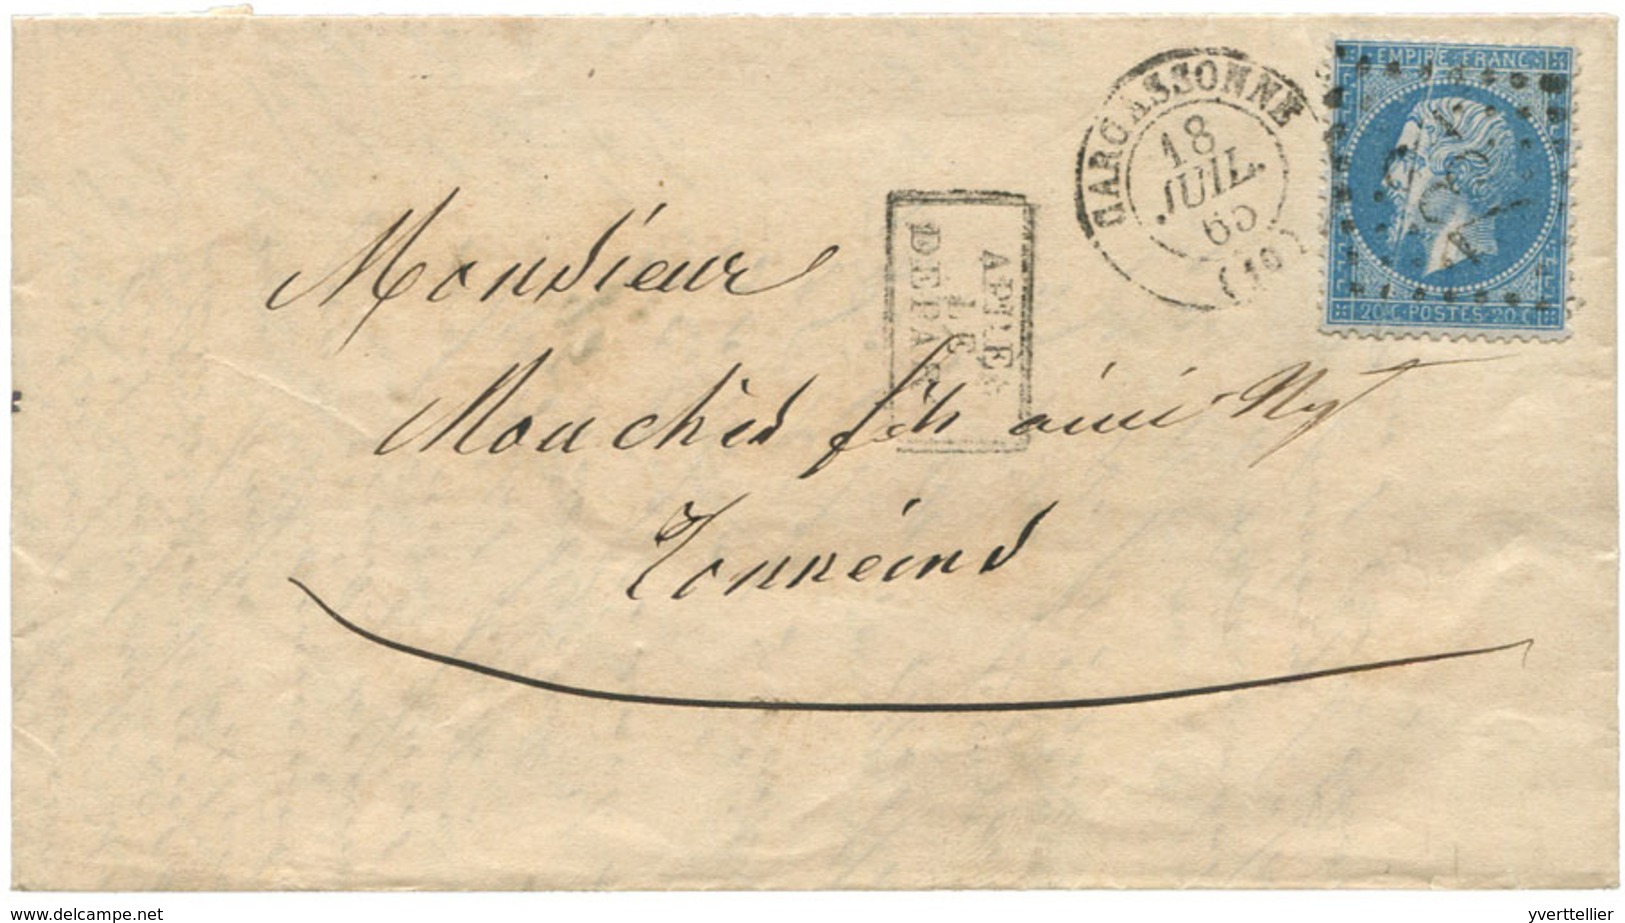 CARCASSONNE
18
JUIL.
65
(10)
EMPIRE FRANC
20 C · POSTES · 20 C
APRÈS
LE
DÉPART
Monsieur
Mouchès fils ainé Ngt
Tonneins
www.delcampe.net
yverttellier